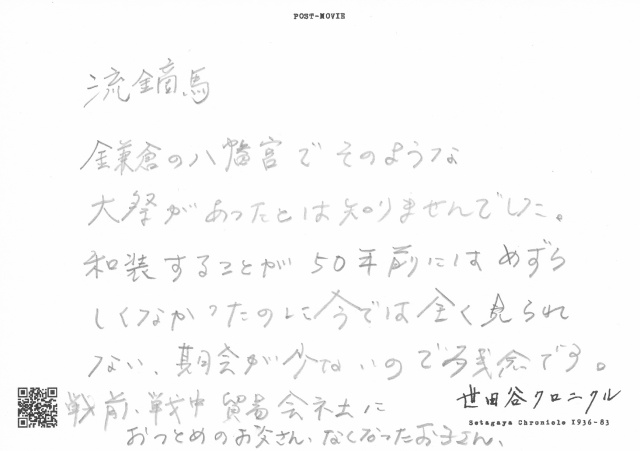 POST-MOVIE
流鏑馬
鎌倉の八幡宮でそのような
大祭があったとは知りませんでした。
和装することが50年前にはめずら
しくなかったのに今では全く見られ
ない、期会が少ないので残念です。
戦前、戦中 貿易会社に
おつとめのお父さん、なくなったお子さん、
世田谷クロニクル
Setagaya Chronicle 1936-83